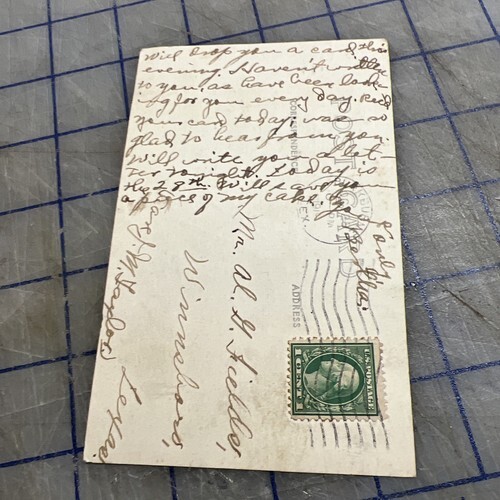 Will drop you a card this
evening. Haven't written
to you as have been look-
ing for you every day. Recd
your card today; was so
glad to hear from you.
Will write you a let-
ter tonight. Today is
the 28th. Will save you
a piece of my cake. Bye
Lovingly
Mr. Al. G. Fields,
Winnsboro,
Texas.
CORRESPONDENCE
ADDRESS
U.S. POSTAGE
1 CENT 1